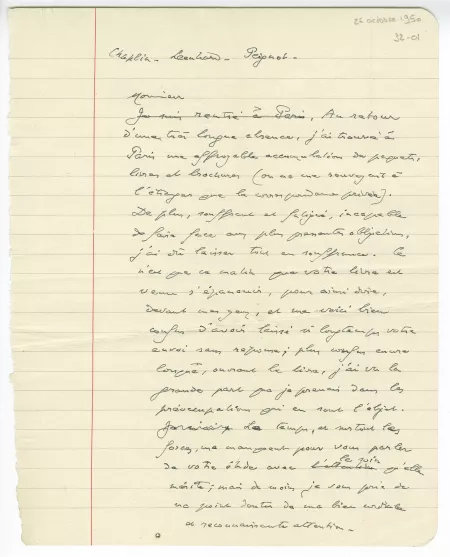 26 octobre 1950
32-01
Chaplin - Leenhard - Peignot -
Monsieur
Je suis rentré à Paris, Au retour
d'une très longue absence, j'ai trouvé à
Paris une effroyable accumulation de paquets,
livres et brochures (on ne me renvoyait à
l'étranger que la correspondance privée).
De plus, souffrant et fatigué, incapable
de faire face aux plus pressantes obligations,
j'ai dû laisser tout en souffrance. Ce
n'est que ce matin que votre livre est
venu s'épanouir, pour ainsi dire,
devant mes yeux; et me voici bien
confus d'avoir laissé si longtemps votre
envoi sans réponse; plus confus encore
lorsque, ouvrant le livre, j'ai vu la
grande part que je prenais dans les
préoccupations qui en sont l'objet.
Le temps, et surtout les
forces, me manquent pour vous parler
de votre étude avec l'attention le soin qu'elle
mérite; mais du moins je vous prie de
ne point douter de ma bien cordiale
et reconnaissante attention -